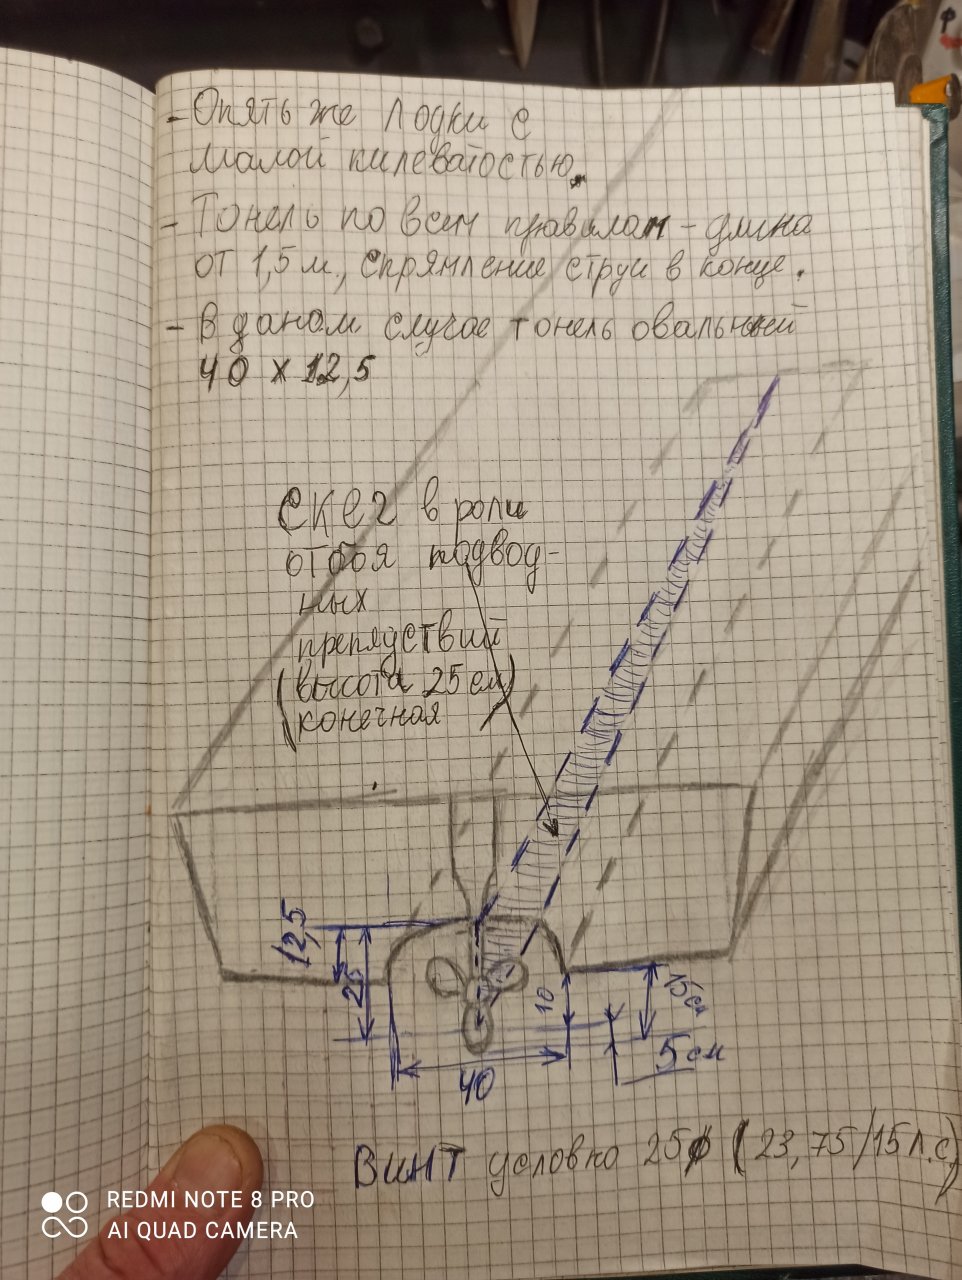 - Опять же лодки с
малой килеватостью.
- Тонель по всем правилам - длина
от 1,5 м., спрямление струи в конце.
- В даном случае тонель овальный
40 х 12,5
СКЕГ в роли
отбоя подвод-
ных
препядствий
(высота 25 см)
конечная
12,5
25
10
15 см
5 см
40
Винт условно 25ф (23,75/15 л.с)
REDMI NOTE 8 PRO
AI QUAD CAMERA